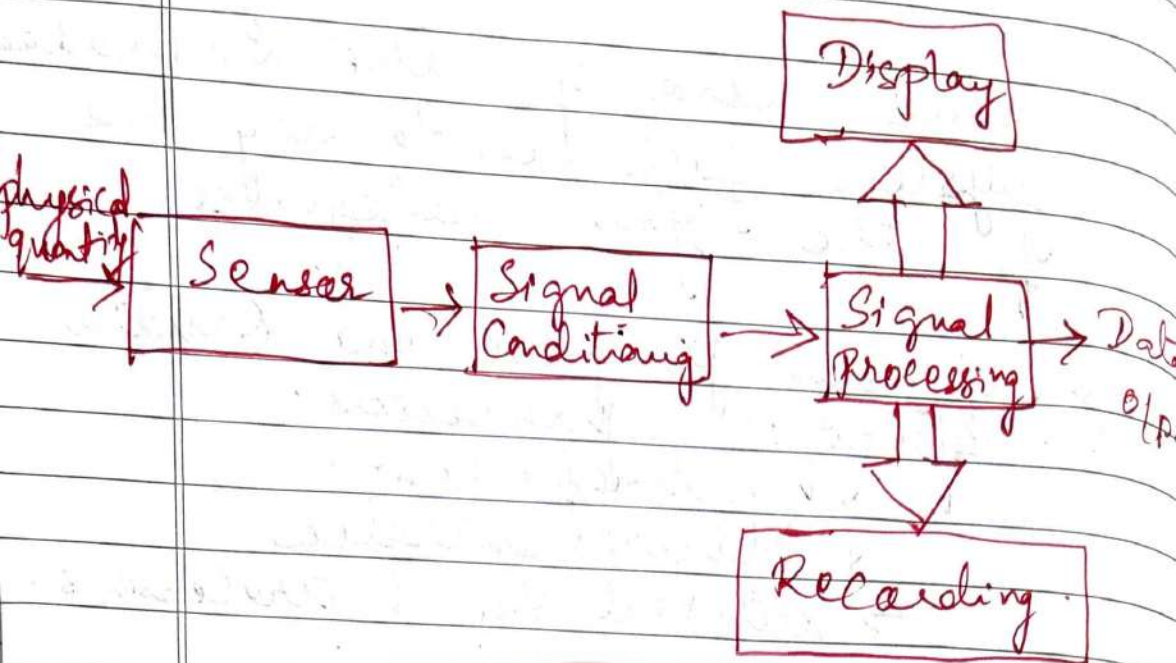 Display
physical
quantity
Sensor
Signal
Conditioning
Signal
Processing
Data
O/p
Recording